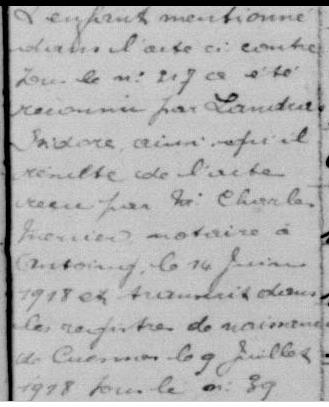 L'enfant mentionné
dans l'acte ci contre
sous le n: 217 a été
reconnu par Landru
Isidore, ainsi qu'il
résulte de l'acte
reçu par Mr Charles
notaire à
Antoing, le 14 Juin
1918 et transcrit dans
les registres de naissance
de Cuesmes le 9 Juillet
1918 sous le n: 89